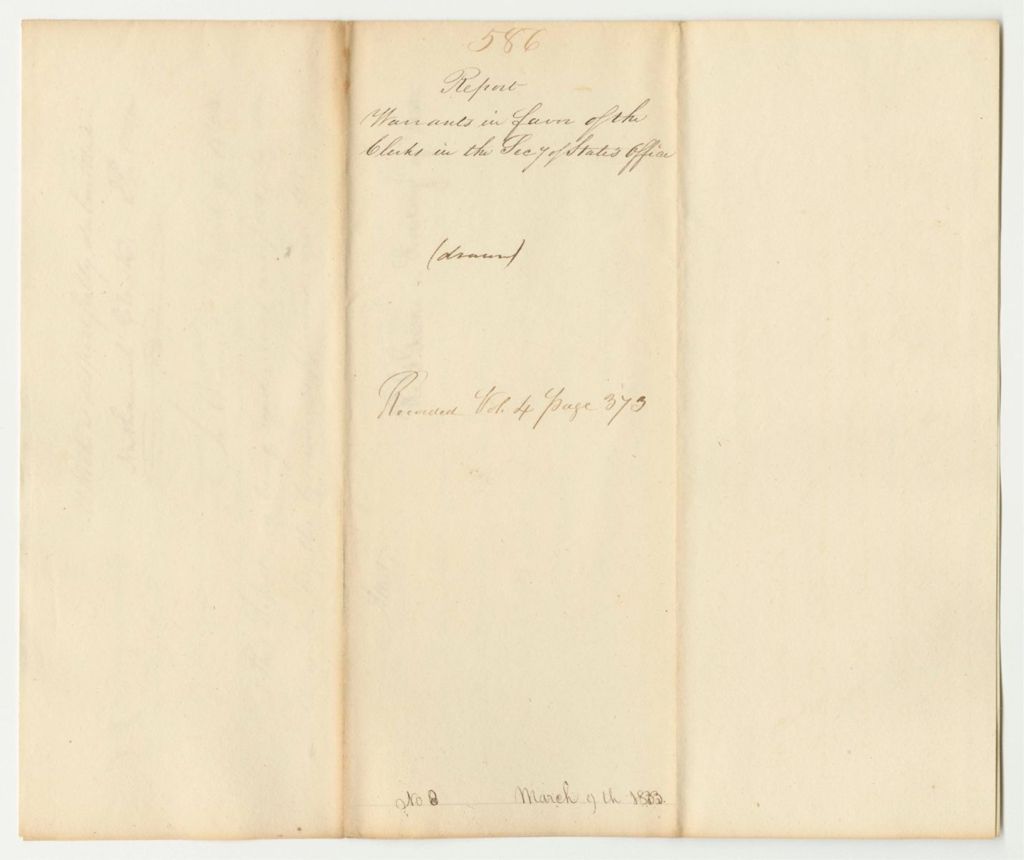 586
Report
Warrants in favor of the
Clerks in the Secy of State's Office
(drawn)
Recorded Vol. 4 page 373
No 8 March 9th 1833.